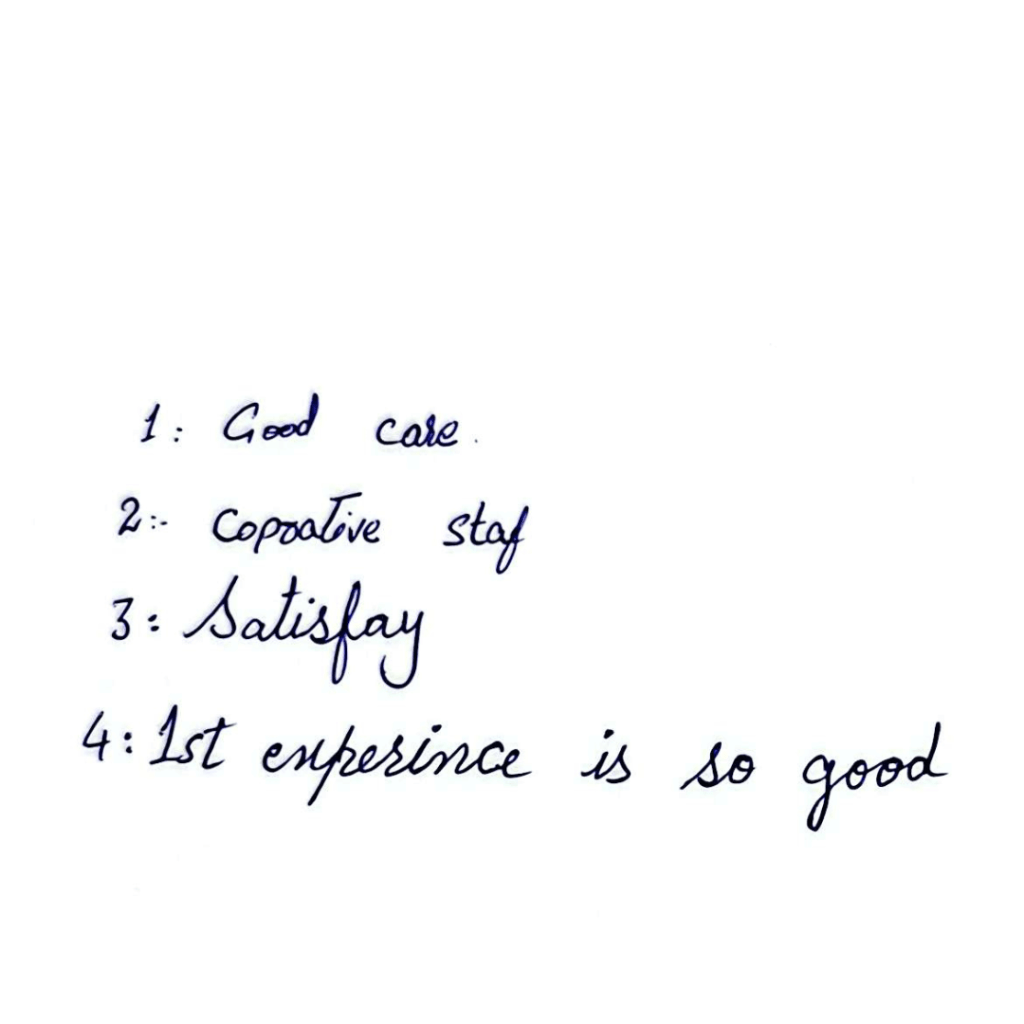 1: Good care.
2:- Coproative staf
3: Satisfay
4: 1st experince is so good